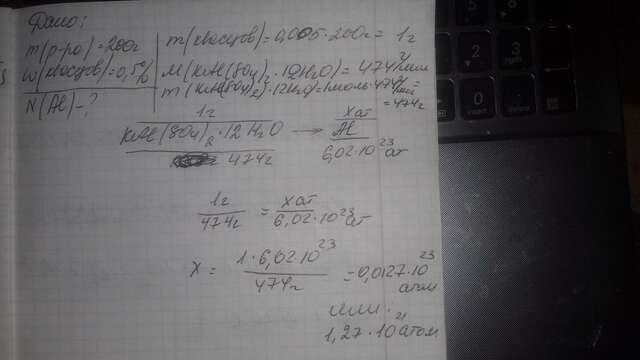 Дано:
m(р-ра)=200г
ω(квасцов)=0,5%
N(Al)-?
m(квасцов)=0,005·200г=1г
M(KAl(SO4)2·12H2O)=474г/моль
m(KAl(SO4)2·12H2O)=1моль·474г/моль=
=474г
1г Xат
KAl(SO4)2·12H2O → Al
474г 6,02·10²³ат
1г/474г = Xат/6,02·10²³ат
X = 1·6,02·10²³/474г =0,0127·10²³
атом
или
1,27·10²¹атом